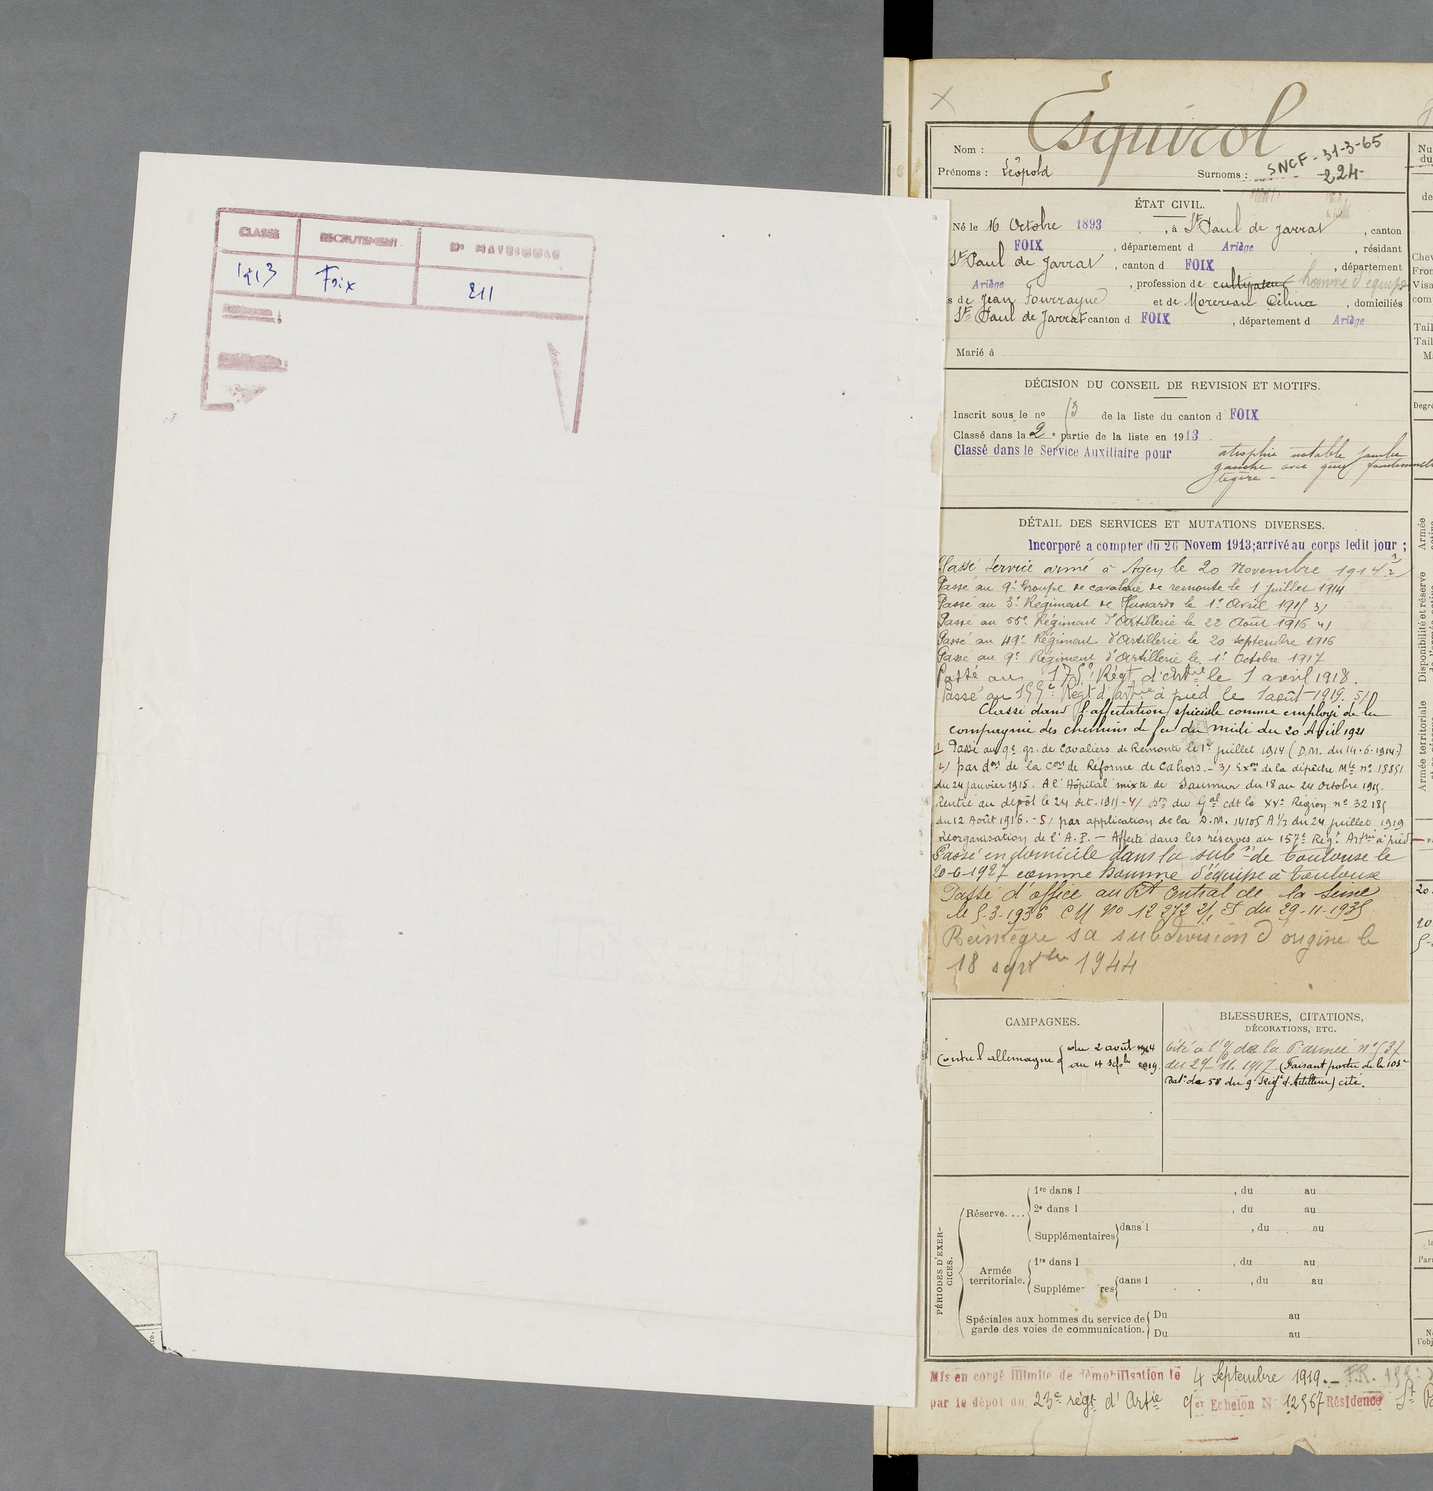 CLASSE RECRUTEMENT N° MATRICULE
1913 Foix 211
Esquirol
Nom :
SNCF-31-3-65
Prénoms : Léopold Surnoms : 224
ÉTAT CIVIL.
Né le 16 Octobre 1893, à St Paul de Jarrat, canton
FOIX, département d Ariège, résidant
St Paul de Jarrat, canton d FOIX, département
Ariège, profession de cultivateur homme d'équipe
s de Jean Fourcayne et de Morereau Célina, domiciliés
St Paul de Jarrat canton d FOIX, département d Ariège
Marié à
DÉCISION DU CONSEIL DE REVISION ET MOTIFS.
Inscrit sous le no 13 de la liste du canton d FOIX
Classé dans la 2e partie de la liste en 1913
Classé dans le Service Auxiliaire pour atrophie notable jambe
gauche avec gêne fonctionnelle
légère -
DÉTAIL DES SERVICES ET MUTATIONS DIVERSES.
Incorporé a compter du 26 Novem 1913; arrivé au corps ledit jour ;
Classé service armé à Agen le 20 Novembre 1914 2/
Passé au 9e Groupe de cavalerie de remonte le 1 juillet 1914
Passé au 3e Régiment de Hussards le 1er Avril 1915 3/
Passé au 55e Régiment d'Artillerie le 22 Août 1916 4/
Passé au 49e Régiment d'Artillerie le 20 septembre 1916
Passé au 9e Régiment d'Artillerie le 1er Octobre 1917
Passé au 175e Régt d'Artie le 1 avril 1918.
Passé au 199e Régt d'artie à pied le 1 août 1919. 5/
Classé dans l'affectation spéciale comme employé de la
compagnie des chemins de fer du midi du 20 Avril 1921
1 Passé au 9e gr. de Cavaliers de Remonte le 1er juillet 1914 (D.M. du 14-6-1914)
2/ par don de la Con de Réforme de Cahors. - 3/ Exon de la dépêche Mlle no 18851
du 24 janvier 1915. A l'Hôpital mixte de Saumur du 18 au 24 Octobre 1915.
Rentré au dépôt le 24 oct. 1915 - 4/ On du Gal cdt la XVe Région no 32185
du 12 Août 1916. - 5/ par application de la D.M. 14105 A 1/7 du 24 juillet 1919
Réorganisation de l'A.P. - Affecté dans les réserves au 157e Régt Artie à pied
Passé en domicile dans la subon de Toulouse le
20-6-1927 comme homme d'équipe à Toulouse
Passé d'office au Rt Central de la Seine
le 5-3-1936 CM No 12 272 2/1 S du 29-11-1935
Réintègre sa subdivision d'origine le
18 septbre 1944
CAMPAGNES.
Contre l'allemagne { du 2 août 1914
au 4 sepbre 1919
BLESSURES, CITATIONS,
DÉCORATIONS, ETC.
Cité à l'O de la armée no 537
du 29.11.1917 (Faisant partie de la 103e
Batie de 58 du 9e Régt d'Artillerie) cité.
PÉRIODES D'EXERCICES.
Réserve.... 1re dans l , du au
2e dans l , du au
Supplémentaires dans l , du au
Armée territoriale. 1re dans l , du au
Supplémentaires dans l , du au
Spéciales aux hommes du service de Du au
garde des voies de communication. Du au
Mis en congé illimité de démobilisation le 4 Septembre 1919. - F.R.
par le dépôt du 23e régt d'Artie 9er Echelon N° 12567 Résidence St